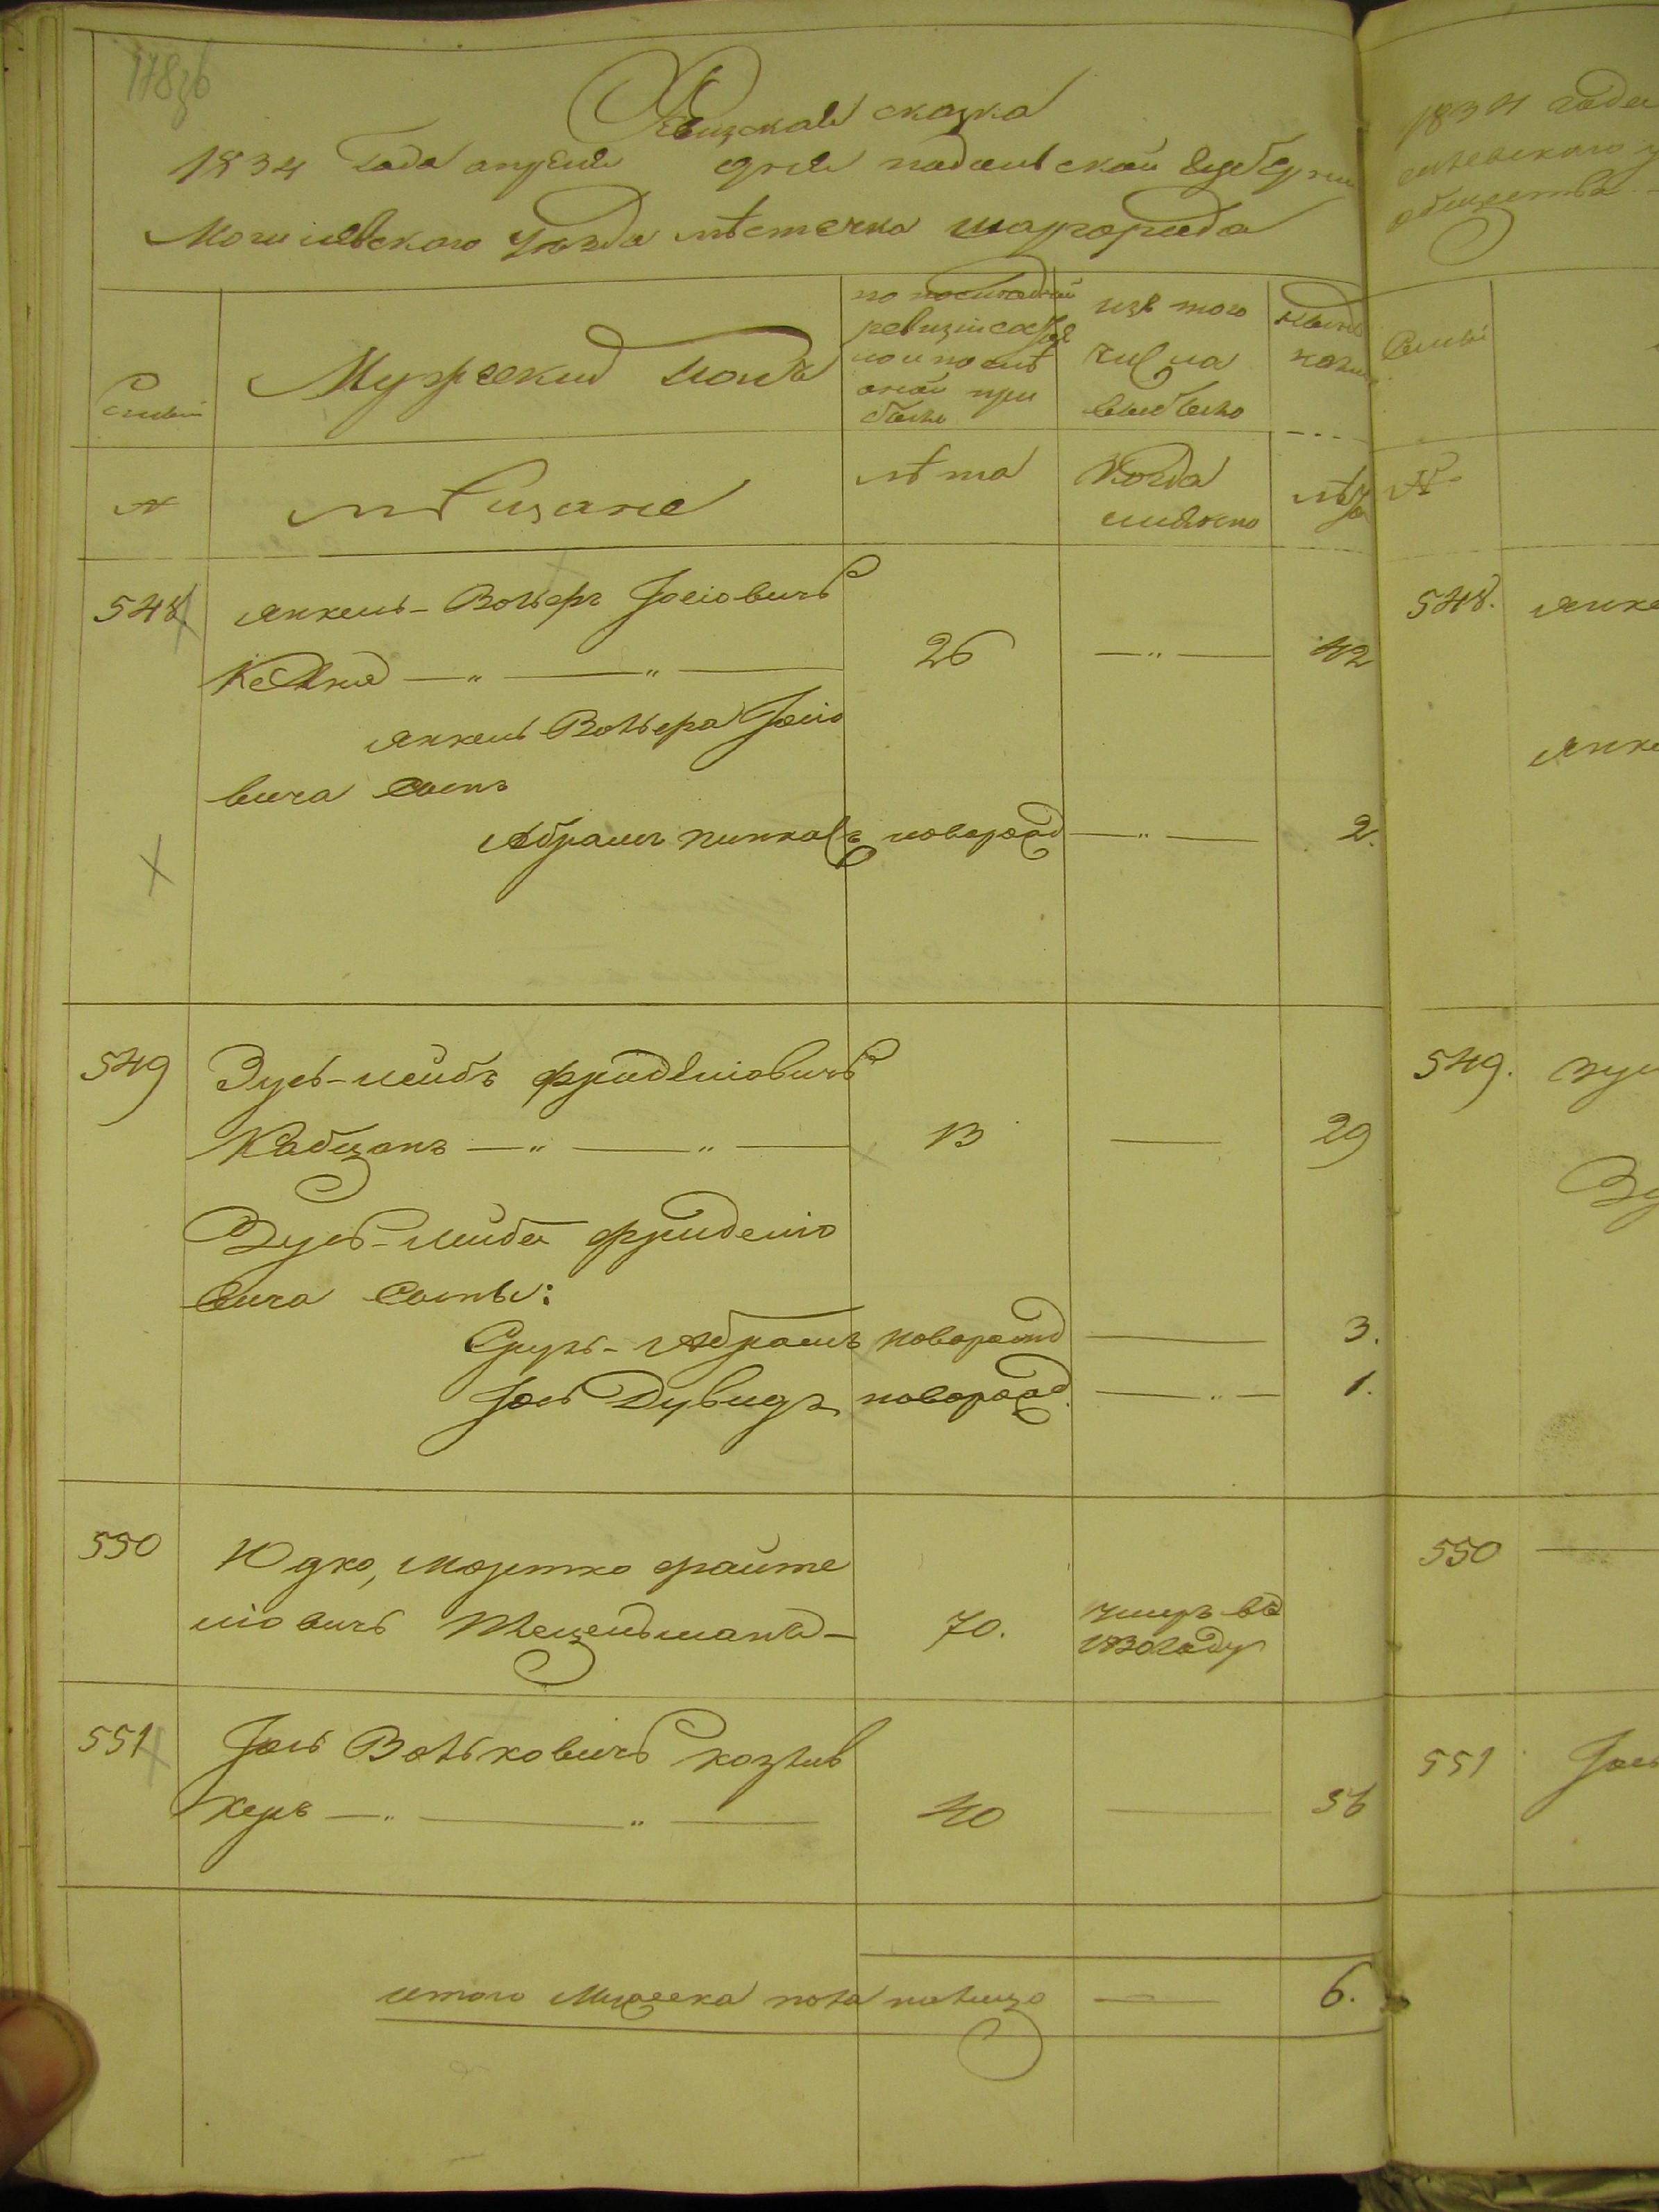 178зб
Ревизская сказка
1834 Года апреля дня подольской Губернии
Могилевского уезда местечка шаргорода
Семьи
Мужеский полъ
по последней ревизіи состояло и после оной прибыло
изъ того числа выбыло
ныне
№
мещане
лета
Когда именно
лета
548. янкель-Вольфъ Іосіовичъ
26 — " — 42
янкель Вольфа Іосіо
вича Сынъ
Абрамъ пинкасъ новорожд — " — 2.
549 Зусь-лейбъ фриделіовичъ
Кабцанъ — " — " — 13 — 29
Зусь-лейба фриделіо
вича Сыны:
Сруль-Абрамъ новорожд — 3.
Іось Дувидъ новорожд. — " — 1.
550 Юдко, мортко файте
ліовичъ — 70. умеръ въ
1830 году
551 Іось Вольковичъ козлив
керъ — " — " — 40 — 56
итого Мужеска пола налицо — 6.
1834 года
общества
Семьи
№
548. янке
янке
549. Зус
Зу
550 —
551 Іось